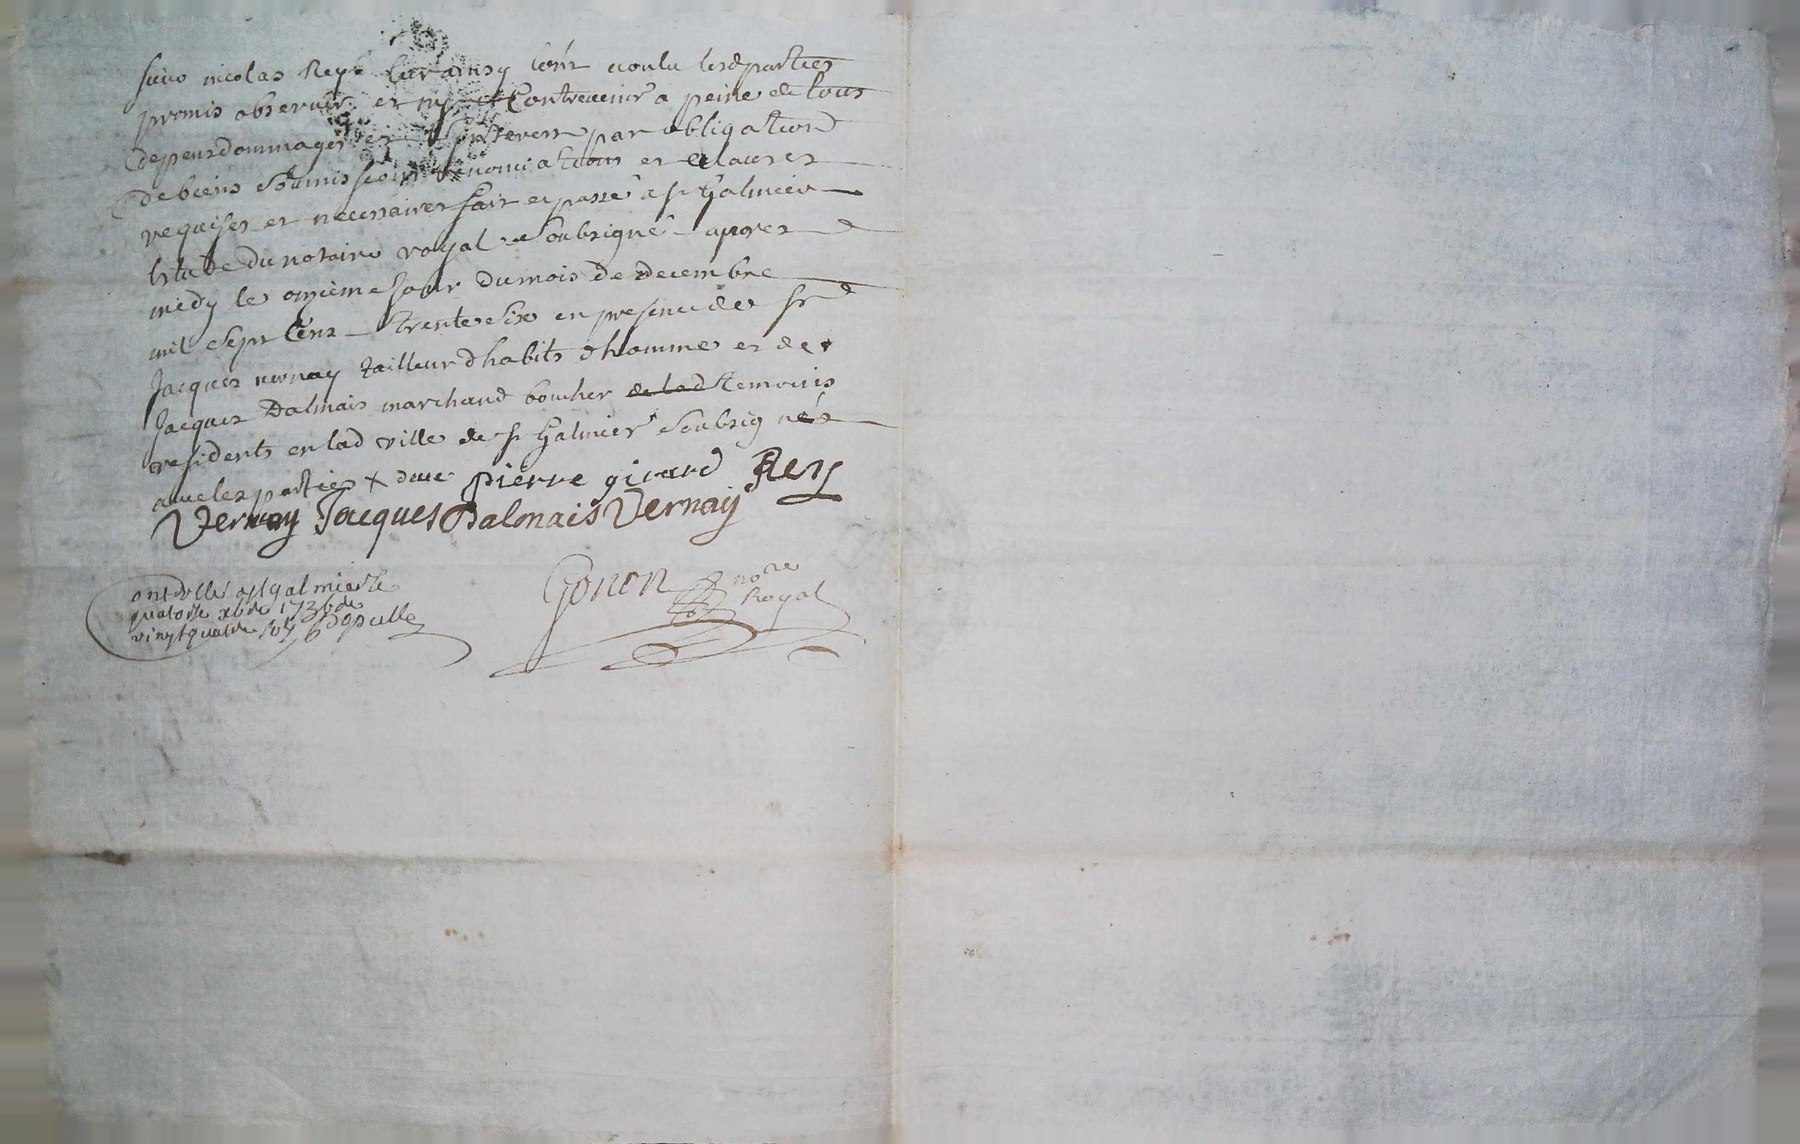 nicolas Rey Car ainsy l'ont voulu lesd parties
promis observer et ny Contrevenir a peine de tous
depens dommages et Interest par obligation
de biens soumissions renonciations et clauses
requises et necessaires fait et passé a st Galmier
Estude du notaire royal soubsigné apres
midy le onzieme jour du mois de decembre
mil sept Cens trente Six en presence de sr
Jacques vernay tailleur d'habits d'homme et de
Jacques Dalmais marchand boucher de lad temoins
residents en lad ville de st Galmier soubsignés
avec les parties x pierre girard Rey
Vernay Jacques Dalmais Vernay
Gonon nore
Royal
a st galmier le
quatorze xbre 1736
vingt quatre sols